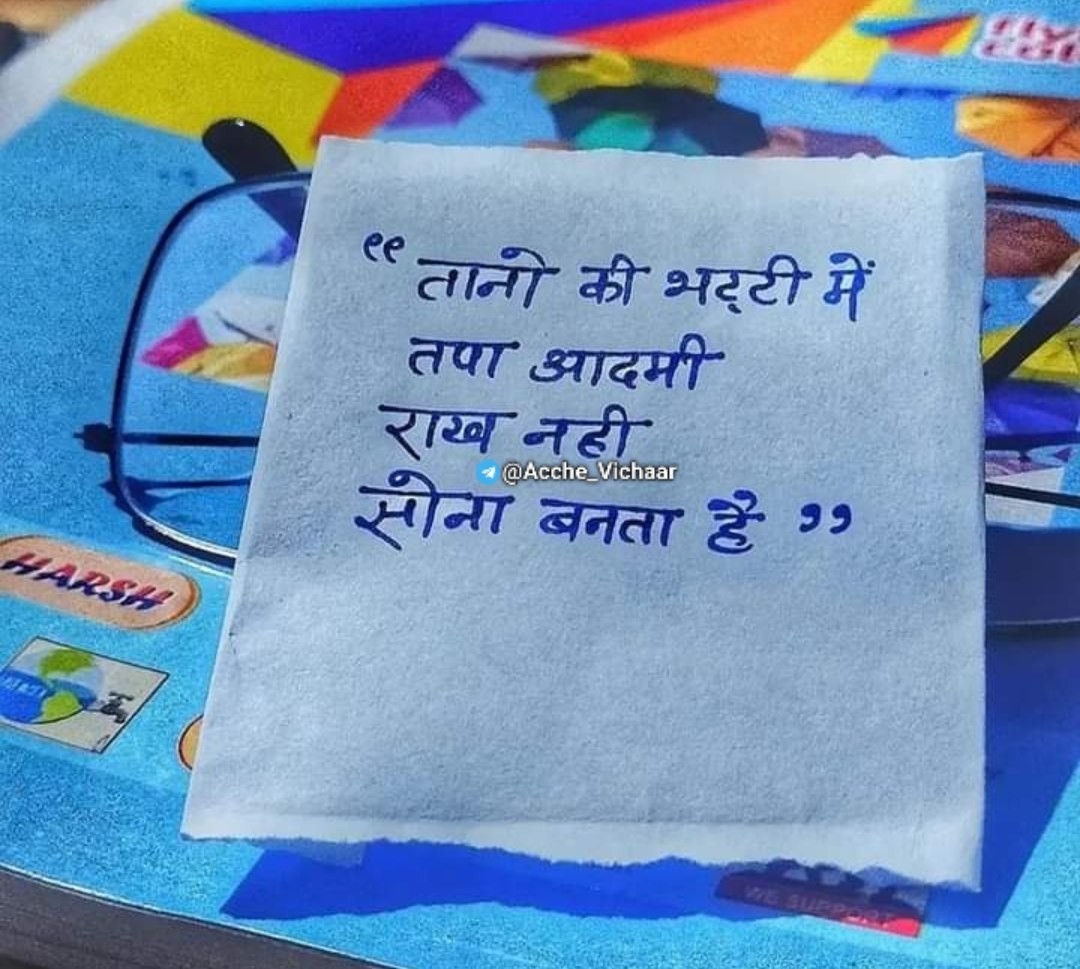 “ तानो की भट्टी में
तपा आदमी
राख नही
@Acche_Vichaar
सोना बनता है ”
HARSH
WE SUPPORT